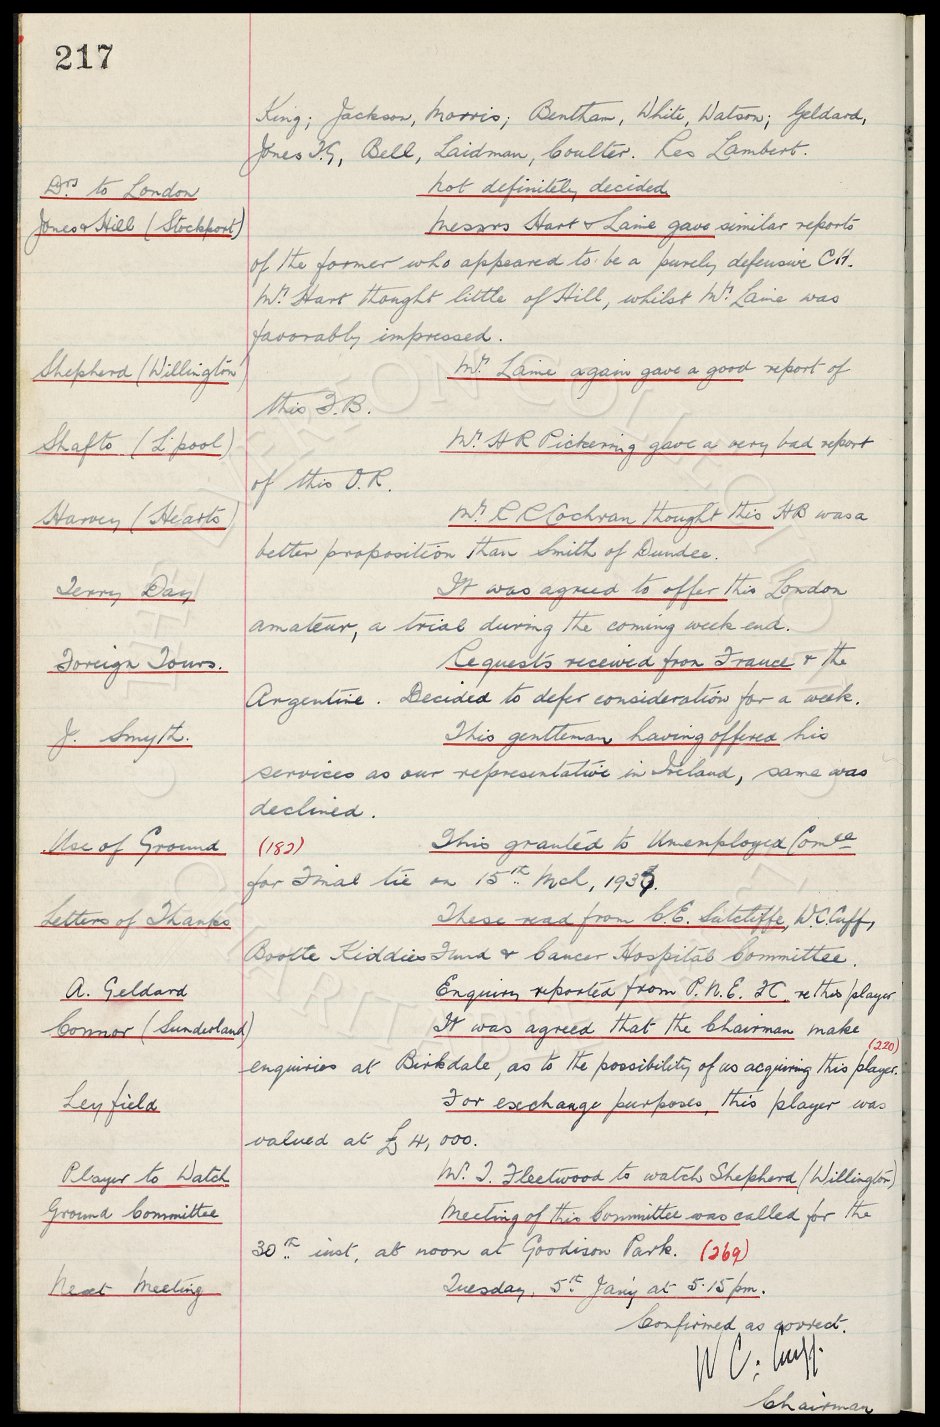 217
King; Jackson, Morris; Bentham, White, Watson; Geldard,
Jones T.G, Bell, Laidman, Coulter. Res Lambert.
Drs to London Not definitely decided
Jones & Hill (Stockport) Messrs Hart & Laine gave similar reports
of the former who appeared to be a purely defensive C.H.
Mr Hart thought little of Hill, whilst Mr Laine was
favorably impressed.
Shepherd (Willington) Mr Laine again gave a good report of
this F.B.
Shafto (L'pool) Mr H R Pickering gave a very bad report
of this O.R.
Harvey (Hearts) Mr R R Cochran thought this HB was a
better proposition than Smith of Dundee.
Terry Day It was agreed to offer this London
amateur, a trial during the coming week end.
Foreign Tours. Requests received from France & the
Argentine. Decided to defer consideration for a week.
J. Smyth. This gentleman having offered his
services as our representative in Ireland, same was
declined.
Use of Ground (182) This granted to Unemployed Comee
for Final tie on 15th Mch, 1937.
Letters of Thanks These read from C.E. Sutcliffe, W.C. Cuff,
Bootle Kiddies Fund & Cancer Hospital Committee.
A. Geldard Enquiry reported from P.N.E. FC re this player
Connor (Sunderland) It was agreed that the Chairman make
enquiries at Birkdale, as to the possibility of us acquiring this player. (220)
Leyfield For exchange purposes, this player was
valued at £4,000.
Player to Watch Mr. T. Fleetwood to watch Shepherd (Willington)
Ground Committee Meeting of this Committee was called for the
30th inst, at noon at Goodison Park. (269)
Next Meeting Tuesday, 5th Jany at 5.15 pm.
Confirmed as correct.
W C. Cuff.
Chairman
THE EVERTON COLLECTION
CHARITABLE